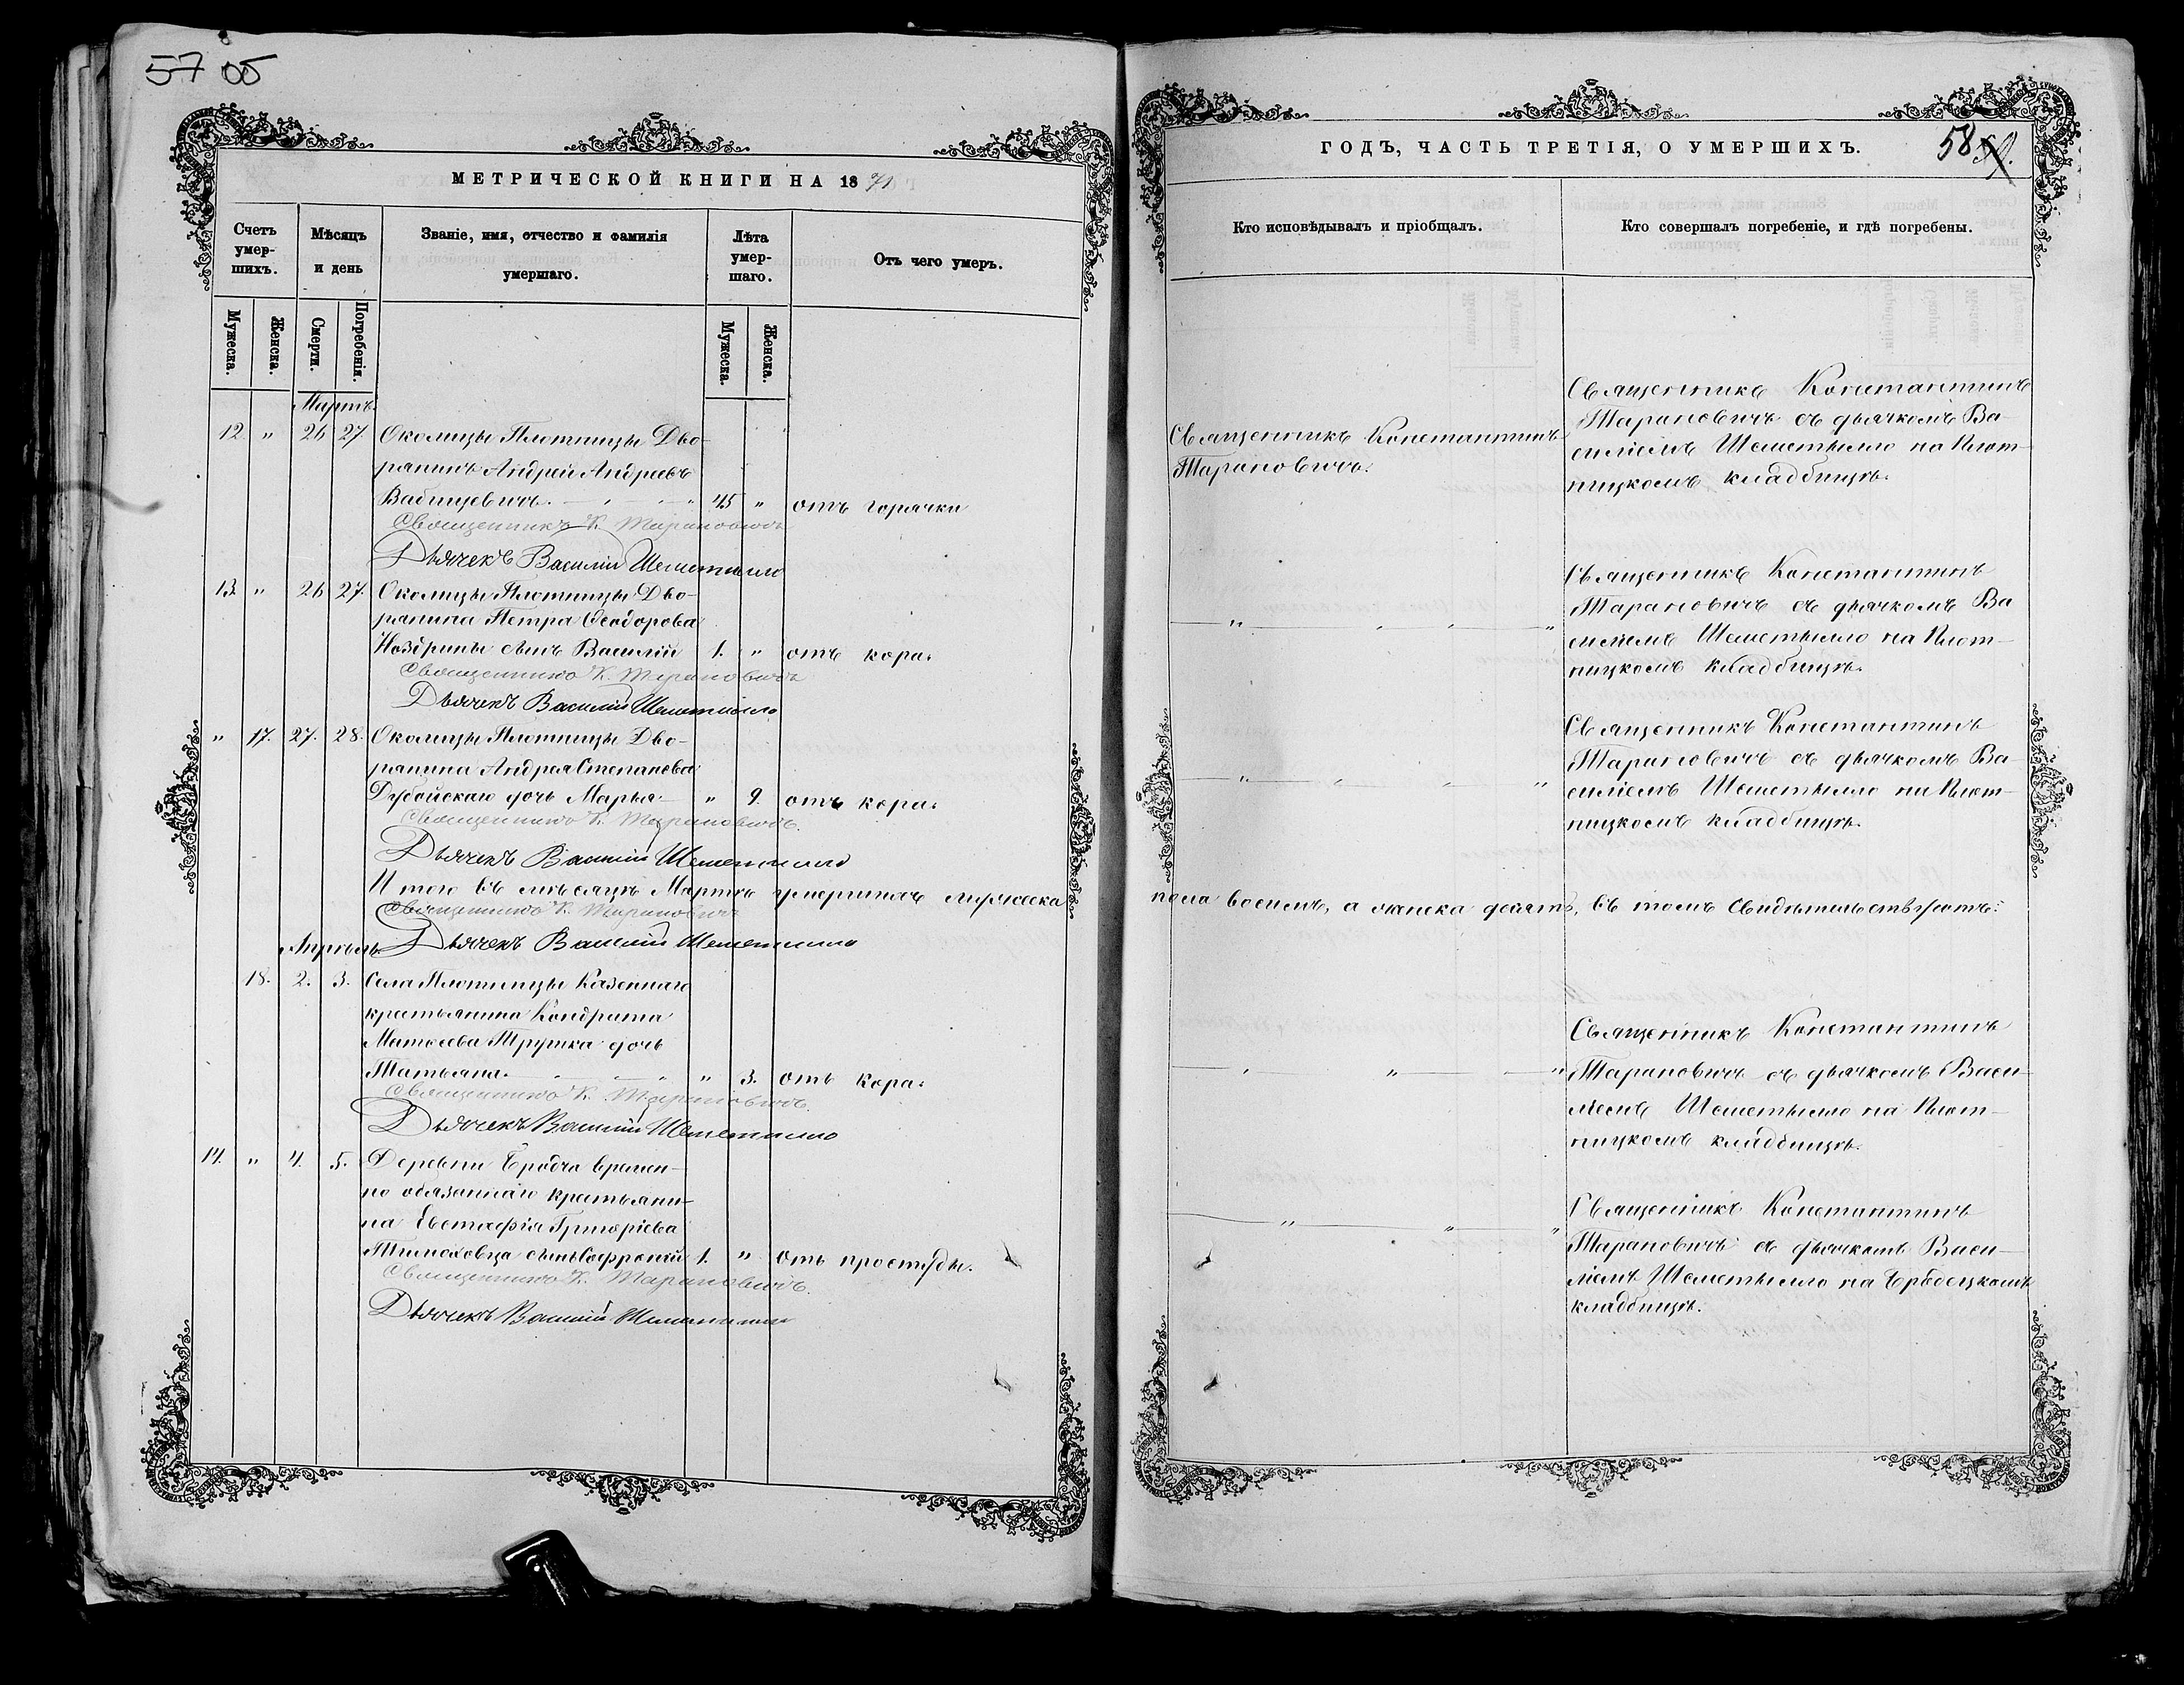 57 об
МЕТРИЧЕСКОЙ КНИГИ НА 1871
Счетъ умер-шихъ.
Мѣсяцъ и день
Званіе, имя, отчество и фамилія умершаго.
Лѣта умер-шаго.
Отъ чего умеръ.
Мужеска.
Женска.
Смерти.
Погребенія.
Мужеска.
Женска.
Мартъ.
12 " 26 27 Околицы Плотницы Дво-
рянинъ Андрей Андреевъ
Вабищевичъ. 45 " отъ горячки
Священникъ К. Тарановичъ
Дьячекъ Василій Шеметилло
13. " 26 27. Околицы Плотницы Дво-
рянина Петра Ѳеодорова
Ноздрины сынъ Василій 1. " отъ кора.
Священникъ К. Тарановичъ
Дьячекъ Василій Шеметилло
" 17. 27. 28. Околицы Плотницы Дво-
рянина Андрея Степанова
Дубойскаго дочь Марья " 9. отъ кора.
Священникъ К. Тарановичъ.
Дьячекъ Василій Шеметилло
Итого въ мѣсяцѣ Мартѣ умершихъ мужеска
Священникъ К. Тарановичъ
Дьячекъ Василій Шеметилло
Апрѣль
18. 2. 3. Села Плотницы Казеннаго
крестьянина Кондрата
Матѳеева Трушка дочь
Татьяна. " 3. отъ кора.
Священникъ К. Тарановичъ.
Дьячекъ Василій Шеметилло
14. " 4. 5. Деревни Бродча времен-
но обязаннаго крестьяни-
на Евстафія Григоріева
Тимоховца сынъ Софроній 1. " отъ простуды.
Священникъ К. Тарановичъ.
Дьячекъ Василій Шеметилло
ГОДЪ, ЧАСТЬ ТРЕТІЯ, О УМЕРШИХЪ.
58
Кто исповѣдывалъ и пріобщалъ.
Кто совершалъ погребеніе, и гдѣ погребены.
Священникъ Константинъ
Тарановичъ.
Священникъ Константинъ
Тарановичъ съ дьячкомъ Ва-
силіемъ Шеметилло на Плот-
ницкомъ кладбищѣ.
Священникъ Константинъ
Тарановичъ съ дьячкомъ Ва
силіемъ Шеметилло на Плот-
ницкомъ кладбищѣ.
Священникъ Константинъ
Тарановичъ съ дьячкомъ Ва-
силіемъ Шеметилло на Плот-
ницкомъ кладбищѣ.
пола восемь, а женска девять, въ томъ свидѣтельствуютъ:
Священникъ Константинъ
Тарановичъ съ дьячкомъ Васи-
ліемъ Шеметилло на Плот-
ницкомъ кладбищѣ.
Священникъ Константинъ
Тарановичъ съ дьячкомъ Васи-
ліемъ Шеметилло на Бродецкомъ
кладбищѣ.